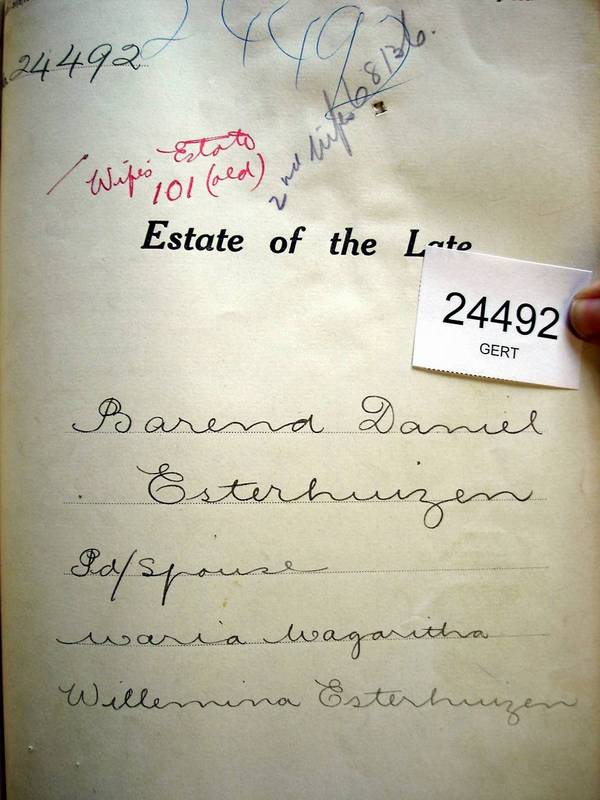 24492
2449
Wife's Estate
101 (old)
2nd Wife's 6813/36.
Estate of the Late
24492
GERT
Barend Daniel
Esterhuizen
Pd/Spouse
Maria Magaritha
Willemina Esterhuizen